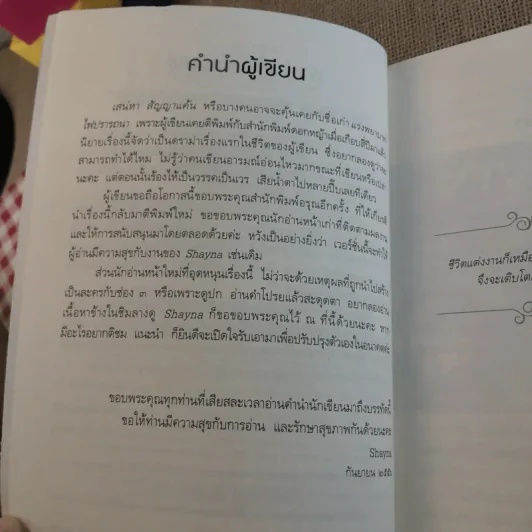 คำนำผู้เขียน
เสน่หา สัญญาแค้น หรือบางคนอาจจะคุ้นเคยกับชื่อเก่า แรงพยาบาท
ไฟปรารถนา เพราะผู้เขียนเคยตีพิมพ์กับสำนักพิมพ์ดอกหญ้าเมื่อเกือบสิบปีมาแล้ว
นิยายเรื่องนี้จัดว่าเป็นดราม่าเรื่องแรกในชีวิตของผู้เขียน ซึ่งอยากลองดูว่าจะ
สามารถทำได้ไหม ไม่รู้ว่าคนเขียนอารมณ์อ่อนไหวมากขณะที่เขียนหรือเปล่า
นะคะ แต่ตอนนั้นร้องไห้เป็นวรรคเป็นเวร เสียน้ำตาไปหลายปี๊บเลยทีเดียว
ผู้เขียนขอถือโอกาสนี้ขอบพระคุณสำนักพิมพ์อรุณอีกครั้ง ที่ให้เกียรติ
นำเรื่องนี้กลับมาตีพิมพ์ใหม่ ขอขอบพระคุณนักอ่านหน้าเก่าที่ติดตามผลงาน
และให้การสนับสนุนมาโดยตลอดด้วยค่ะ หวังเป็นอย่างยิ่งว่า เวอร์ชั่นนี้จะทำให้
ผู้อ่านมีความสุขกับงานของ Shayna เช่นเดิม
ส่วนนักอ่านหน้าใหม่ที่อุดหนุนเรื่องนี้ ไม่ว่าจะด้วยเหตุผลที่ถูกนำไปสร้าง
เป็นละครกับช่อง ๓ หรือเพราะดูปก อ่านคำโปรยแล้วสะดุดตา อยากลองอ่าน
เนื้อหาข้างในชิมลางดู Shayna ก็ขอขอบพระคุณไว้ ณ ที่นี้ด้วยนะคะ หาก
มีอะไรอยากติชม แนะนำ ก็ยินดีจะเปิดใจรับเอามาเพื่อปรับปรุงตัวเองในอนาคตค่ะ
ขอบพระคุณทุกท่านที่เสียสละเวลาอ่านคำนำนักเขียนมาถึงบรรทัดนี้
ขอให้ท่านมีความสุขกับการอ่าน และรักษาสุขภาพกันด้วยนะคะ
Shayna
กันยายน
ชีวิตแต่งงานก็เหมือ
จึงจะเติบโต